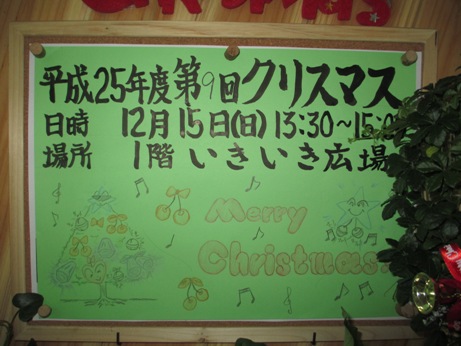 平成25年度第9回クリスマス
日時 12月15日(日) 13:30～15:0
場所 1階 いきいき広場
Merry
Christmas